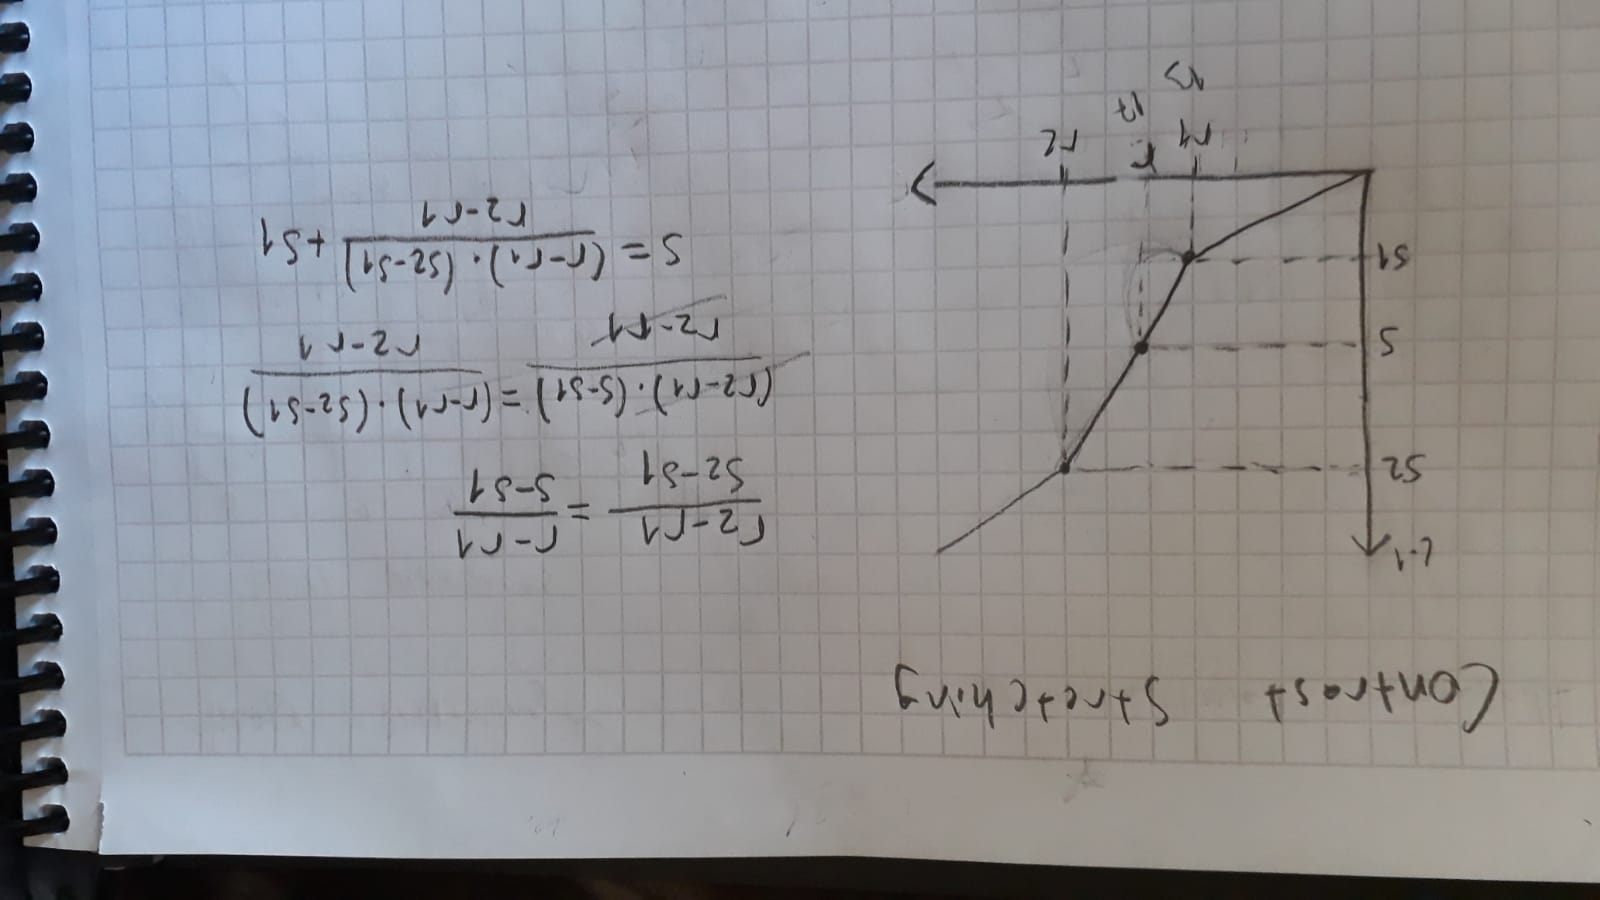 Contrast Stretching
L-1
S2
S
S1
r1 r r2
13 17
r2-r1 / s2-s1 = r-r1 / s-s1
(r2-r1)·(s-s1) / r2-r1 = (r-r1)·(s2-s1) / r2-r1
s = (r-r1)·(s2-s1) / r2-r1 + s1